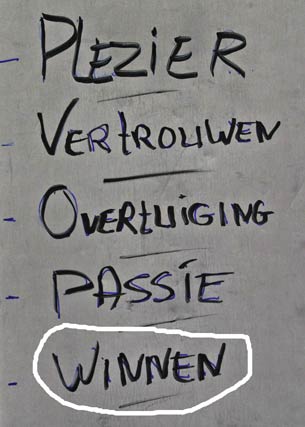 - PLEZIER
- VERTROUWEN
- OVERTUIGING
- PASSIE
- WINNEN